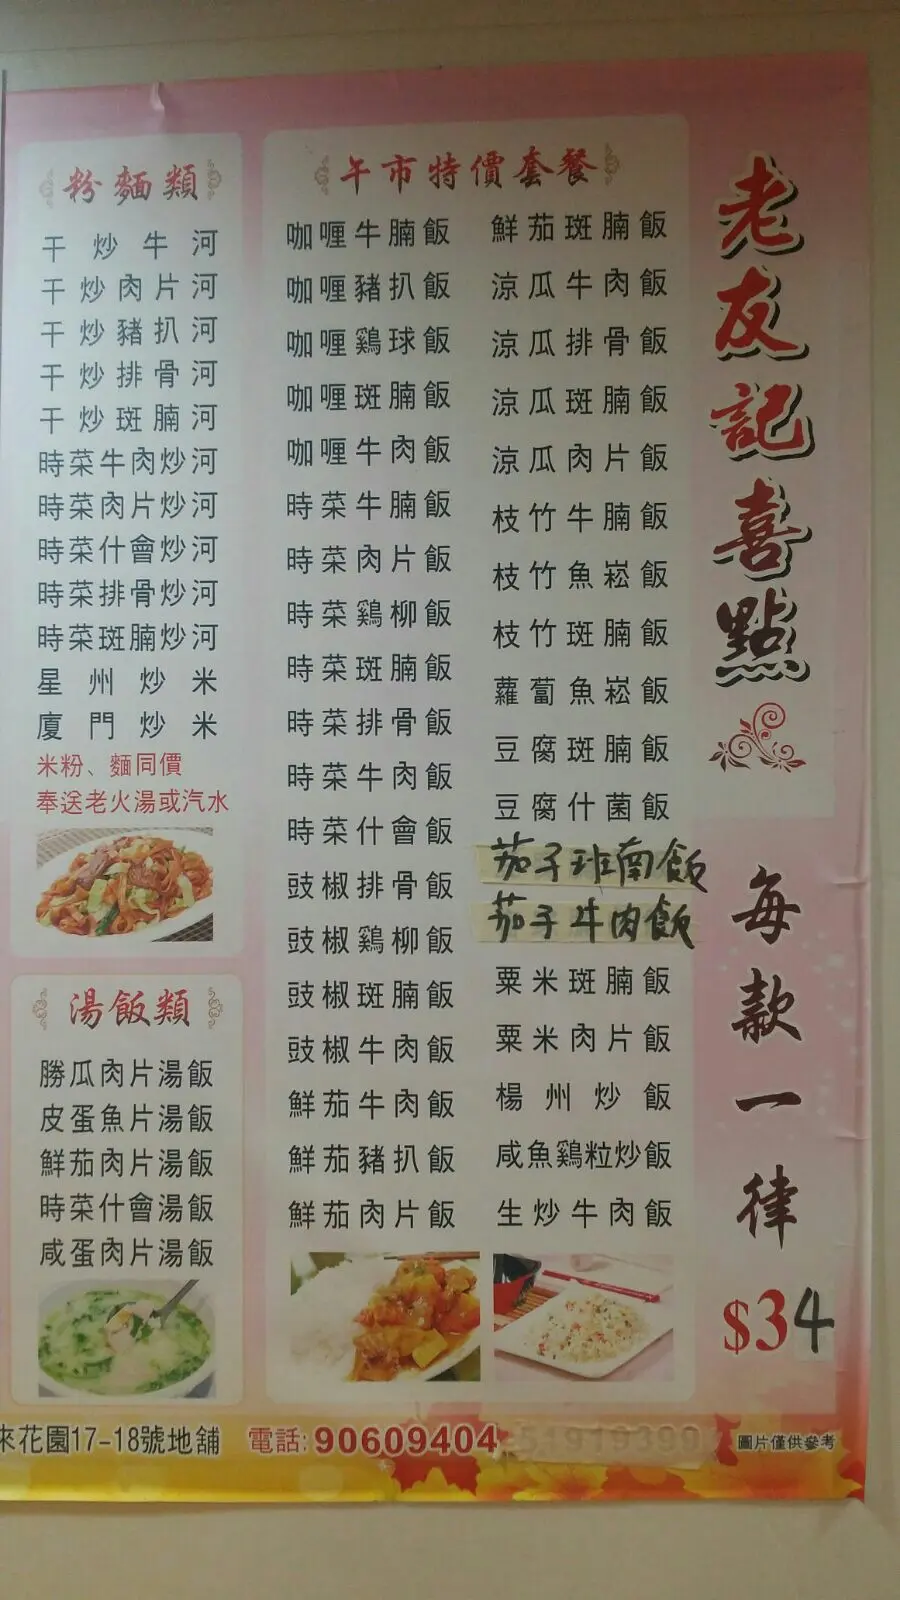 老友記喜點
每款一律
$34
粉麵類
干炒牛河
干炒肉片河
干炒豬扒河
干炒排骨河
干炒斑腩河
時菜牛肉炒河
時菜肉片炒河
時菜什會炒河
時菜排骨炒河
時菜斑腩炒河
星州炒米
廈門炒米
米粉、麵同價
奉送老火湯或汽水
湯飯類
勝瓜肉片湯飯
皮蛋魚片湯飯
鮮茄肉片湯飯
時菜什會湯飯
咸蛋肉片湯飯
午市特價套餐
咖喱牛腩飯
咖喱豬扒飯
咖喱鷄球飯
咖喱斑腩飯
咖喱牛肉飯
時菜牛腩飯
時菜肉片飯
時菜鷄柳飯
時菜斑腩飯
時菜排骨飯
時菜牛肉飯
時菜什會飯
豉椒排骨飯
豉椒鷄柳飯
豉椒斑腩飯
豉椒牛肉飯
鮮茄牛肉飯
鮮茄豬扒飯
鮮茄肉片飯
鮮茄斑腩飯
涼瓜牛肉飯
涼瓜排骨飯
涼瓜斑腩飯
涼瓜肉片飯
枝竹牛腩飯
枝竹魚崧飯
枝竹斑腩飯
蘿蔔魚崧飯
豆腐斑腩飯
豆腐什菌飯
茄子班南飯
茄子牛肉飯
粟米斑腩飯
粟米肉片飯
楊州炒飯
咸魚鷄粒炒飯
生炒牛肉飯
來花園17-18號地舖
電話:90609404
圖片僅供參考